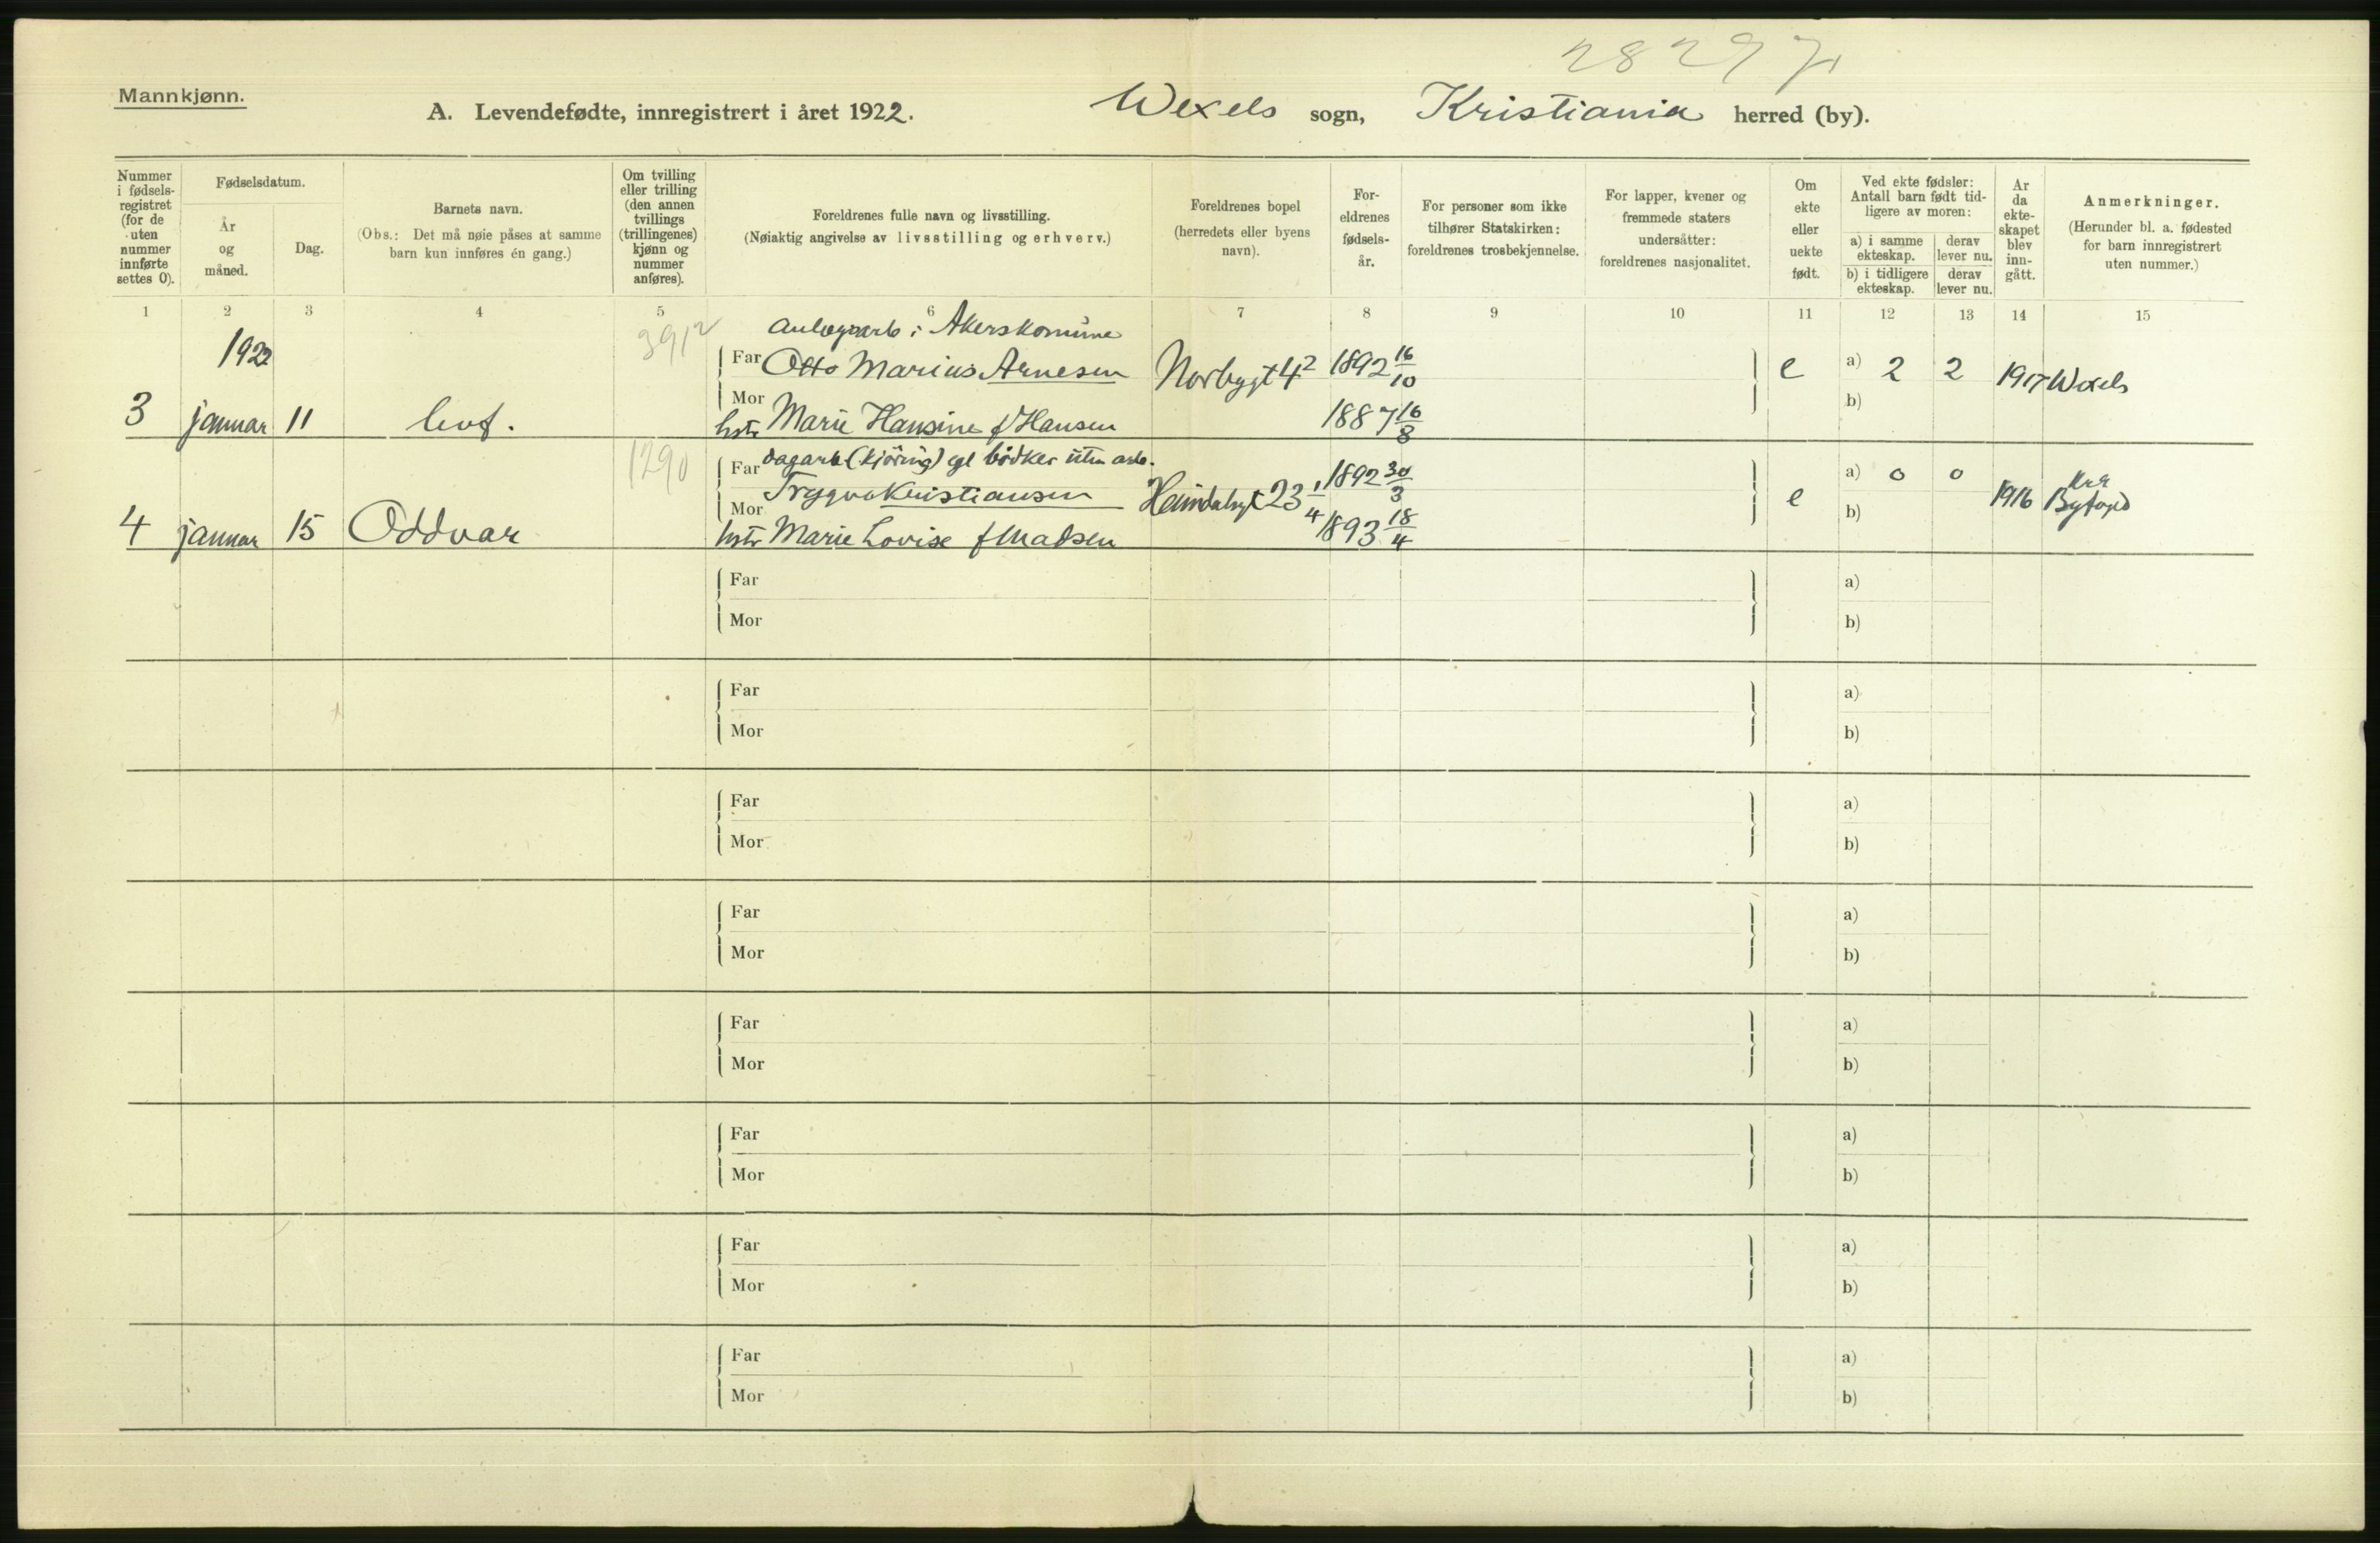 28297
Mannkjønn.
A. Levendefødte, innregistrert i året 1922. Wexels sogn, Kristiania herred (by).
Nummer i fødsels- registret (for de uten nummer innførte settes 0).
Fødselsdatum.
År og måned.
Dag.
Barnets navn.
(Obs.: Det må nøie påses at samme barn kun innføres én gang.)
Om tvilling eller trilling (den annen tvillings (trillingenes) kjønn og nummer anføres).
Foreldrenes fulle navn og livsstilling.
(Nøiaktig angivelse av livsstilling og erhverv.)
Foreldrenes bopel (herredets eller byens navn).
For- eldrenes fødsels- år.
For personer som ikke tilhører Statskirken: foreldrenes trosbekjennelse.
For lapper, kvener og fremmede staters undersåtter: foreldrenes nasjonalitet.
Om ekte eller uekte født.
Ved ekte fødsler: Antall barn født tid- ligere av moren:
a) i samme ekteskap. derav lever nu.
b) i tidligere ekteskap. derav lever nu.
År da ekte- skapet blev inn- gått.
Anmerkninger.
(Herunder bl. a. fødested for barn innregistrert uten nummer.)
1 2 3 4 5 6 7 8 9 10 11 12 13 14 15
1922 3912 Anlegsarb i Akerskomune
Far Otto Marius Arnesen Norbygt 4² 1892 16/10 e a) 2 2 1917 Wexels
Mor b)
3 januar 11 levf. hstr Marie Hansine f Hansen 1887 16/8
1290 Far dagarb (kjöring) egl bödker uten arb.
Trygve Kristiansen Heimdalsgt 23 1/4 1892 30/3 e a) 0 0 1916 Kra Byfogd
Mor b)
4 januar 15 Oddvar hstr Marie Lovise f Madsen 1893 18/4
Far a)
Mor b)
Far a)
Mor b)
Far a)
Mor b)
Far a)
Mor b)
Far a)
Mor b)
Far a)
Mor b)
Far a)
Mor b)
Far a)
Mor b)